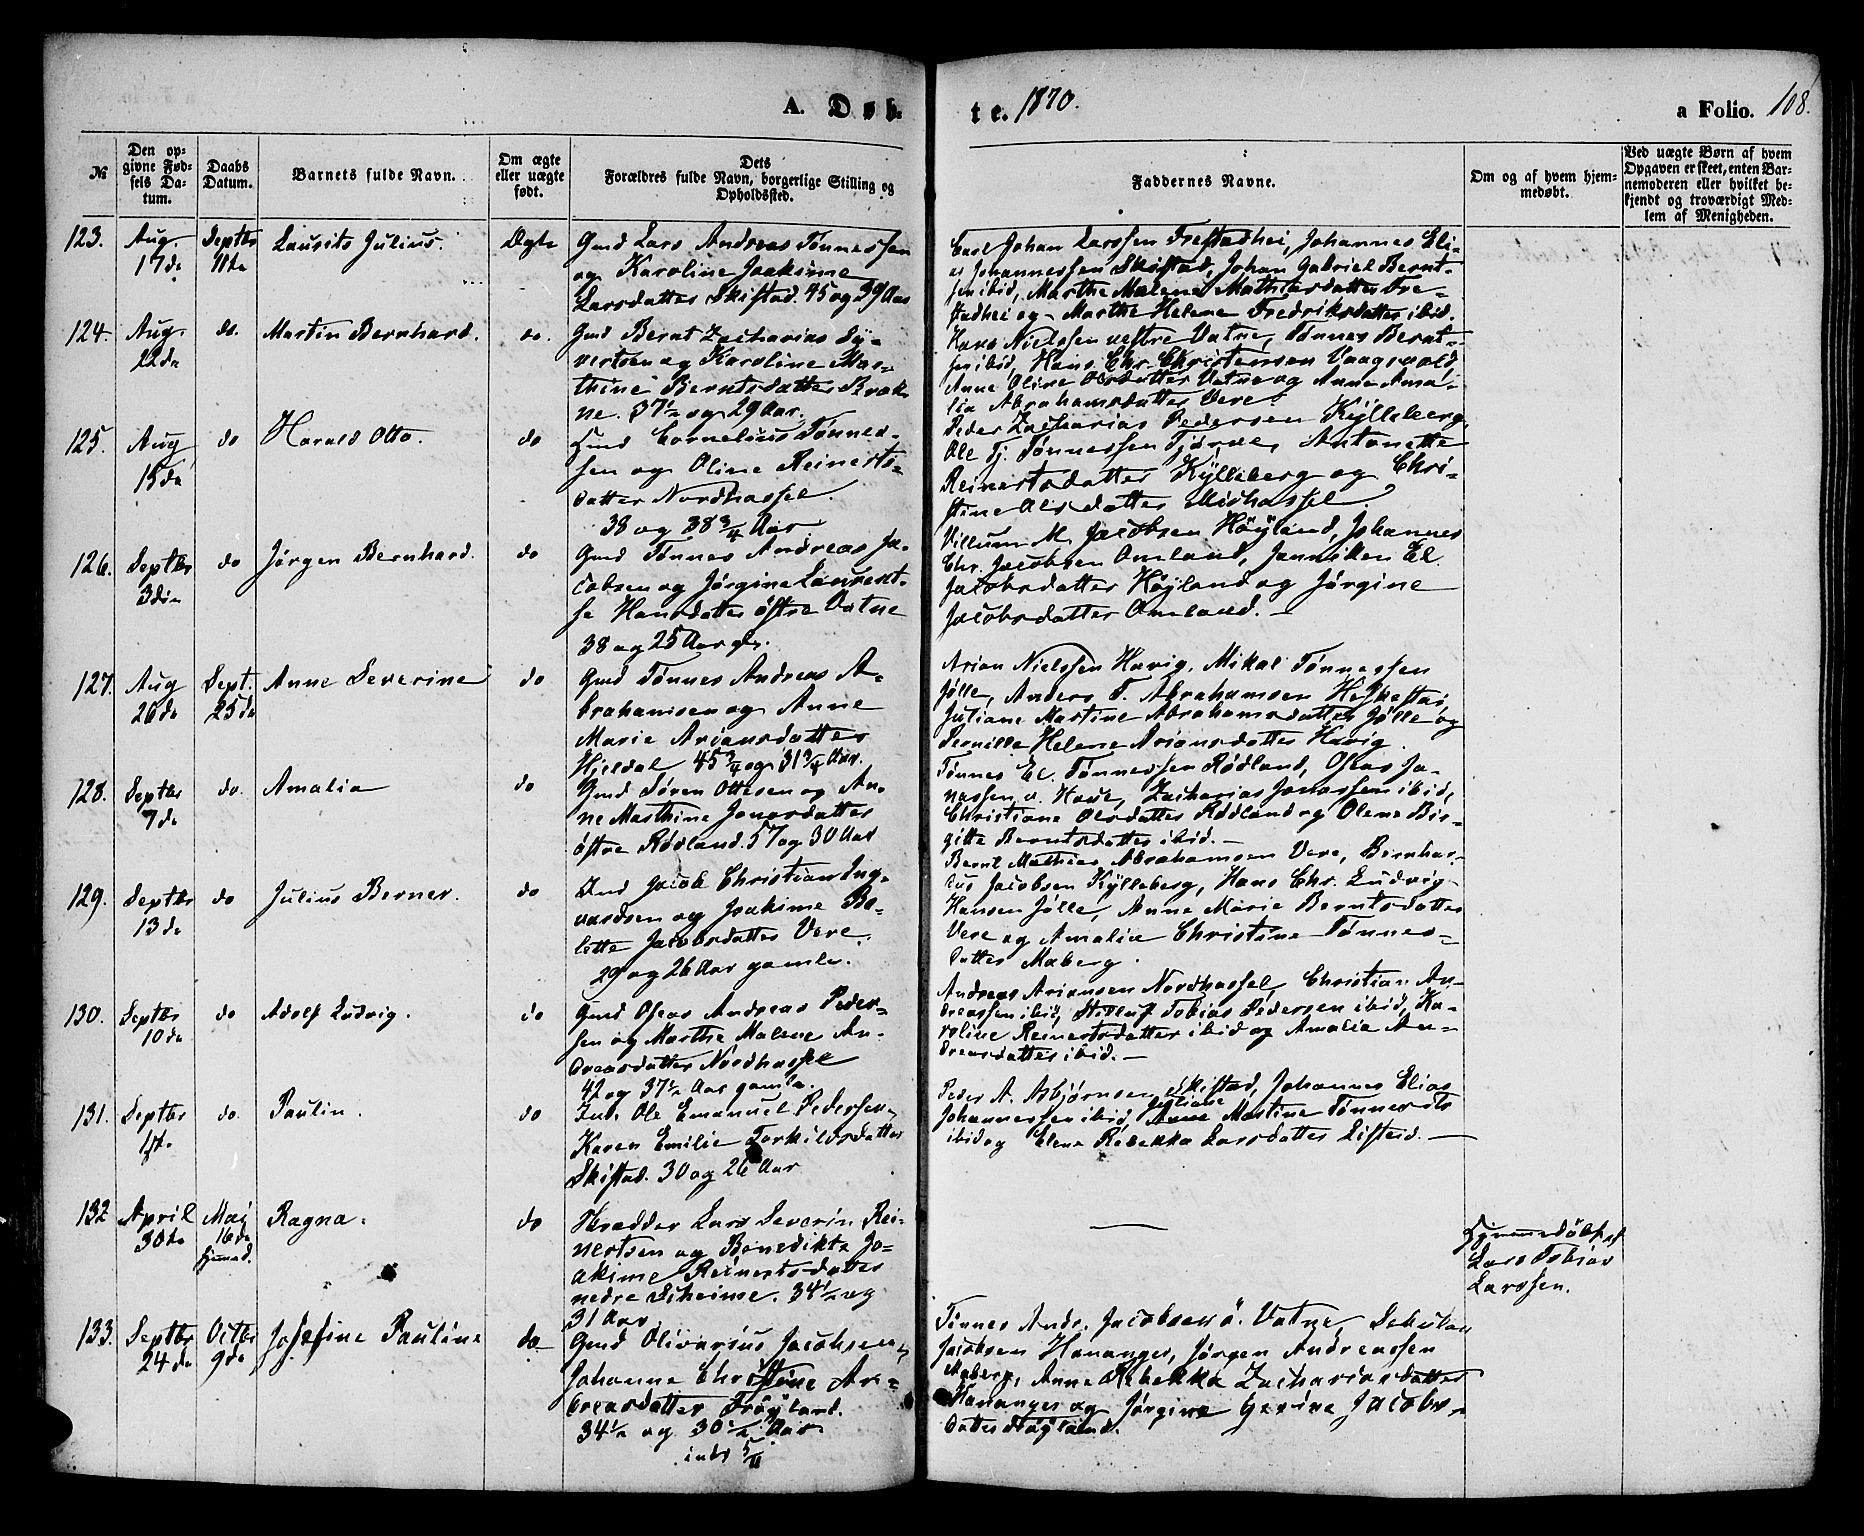 A. Døb-
te. 1870.
a Folio. 108.
№
Den op-
givne Fød-
sels Da-
tum.
Daabs
Datum.
Barnets fulde Navn.
Om ægte
eller uægte
født.
Dets
Forældres fulde Navn, borgerlige Stilling og
Opholdssted.
Faddernes Navne.
Om og af hvem hjem-
medøbt.
Ved uægte Børn af hvem
Opgaven er skeet, enten Bar-
nemoderen eller hvilket be-
kjendt og troværdigt Med-
lem af Menigheden.
123.
Aug.
17de
Septbr
11te
Laurits Julius.
Ægte
Gmd Lars Andreas Tønnessen
og Karoline Joakime
Larsdatter Skistad. 45 og 39 Aar
Carl Johan Larssen Trestadhei, Johannes Eli-
as Johannessen Skistad, Johan Gabriel Bernt-
sen ibid, Marthe Malene Mathiasdatter Tre-
stadhei og Marthe Helene Fredriksdatter ibid.
124.
Aug
22de
do.
Martin Bernhard.
do.
Gmd Bernt Zacharias Sy-
vertsen og Karoline Mar-
thine Berntsdatter Bræk-
ne. 37½ og 29 Aar.
Hans Nielssen vestre Vatne, Tønnes Bernt-
sen ibid, Hans Chr. Christensen Vaagsvold,
Anne Oline Olsdatter Vatne og Anne Ama-
lia Abrahamsdatter Vere.
125.
Aug
15de
do
Harald Otto.
do
Hmd Cornelius Tønnes-
sen og Oline Reinerts-
datter Nordhassel.
38 og 38¾ Aar
Peder Zacharias Pedersen Kylleberg,
Ole Tj. Tønnessen Tjørve, Antonette
Reinertsdatter Kylleberg og Chri-
stine Olsdatter Midhassel.
126.
Septbr
3die
do
Jørgen Bernhard.
do
Gmd Tønnes Andreas Ja-
cobsen og Jørgine Laurent-
se Hansdatter østre Vatne
38 og 25 Aar
Villum M. Jacobsen Høyland, Johannes
Chr. Jacobsen Omland, Janniken El.
Jacobsdatter Høyland og Jørgine
Jacobsdatter Omland.
127.
Aug
26de
Sept.
25de
Anne Severine
do
Gmd Tønnes Andreas A-
brahamsen og Anne
Marie Ariansdatter
Hjeldal 45¾ og 31¾ Aar.
Arian Nielssen Havig, Mikal Tønnessen
Jølle, Anders T. Abrahamsen
Juliane Martine Abrahamsdatter Jølle og
Pernille Helene Ariansdatter Havig.
128.
Septbr
7de
do.
Amalia
do
Gmd Søren Ottesen og An-
ne Marthine Jonasdatter
østre Rødland. 57 og 30 Aar
Tønnes El. Tønnessen Rødland, Oseas Jo-
nassen v. Hode, Zacharias Jonassen ibid,
Christiane Olsdatter Rødland og Olene Bir-
gitte Berntsdatter ibid.
129.
Septbr
13de
do
Julius Berner.
do
Ind Jacob Christian Ing-
vardsen og Joakime Bo-
lette Jacobsdatter Vere.
29 og 26 Aar gamle.
Bernt Mathias Abrahamsen Vere, Bernhar-
dus Jacobsen Kylleberg, Hans Chr. Ludvig
Hansen Jølle, Anne Marie Berntsdatter
Vere og Amalia Christine Tønnes-
datter Maberg.
130.
Septbr
10de
do
Adolf Ludvig.
do
Gmd Oseas Andreas Peder-
sen og Marthe Malene An-
dreasdatter Nordhassel
42 og 37½ Aar gamle.
Andreas Ariansen Nordhassel, Christian An-
dreassen ibid, Tobias Pedersen ibid, Ka-
roline Reinertsdatter ibid og Amalia An-
dreasdatter ibid.
131.
Septbr
do.
Paulin.
do
Ind. Ole Emanuel Pedersen,
Karen Emilie Torkildsdatter
Skistad. 30 og 26 Aar
Peder A. Asbjørnsen Skistad, Johannes Elias
Johannessen ibid, Juliane Martine Tønnesdtr
ibid og Elene Rebekka Larsdatter Listeid.
132
April
30te
Maj
16de
hjemmd.
Ragna.
do
Skrædder Lars Severin Rei-
nertsen og Benedikte Jo-
akime Reinertsdatter
nedre Eiheime. 34½ og
31 Aar.
Hjemmedøbt af
Lars Tobias
Larssen.
133.
Septbr
24de
Octbr
9de
Josefine Pauline
do
Gmd Olivarius Jacobsen,
Johanne Christine An-
dreasdatter Frøyland.
34½ og 30½ Aar.
indb 5/11
Tønnes Andr. Jacobsen ö. Vatne,
Jacobsen Hananger, Jørgen Andreassen
Maberg, Anne Rebekka Zachariasdatter
Hananger og Jørgine Gerine Jacobs-
datter Høyland.